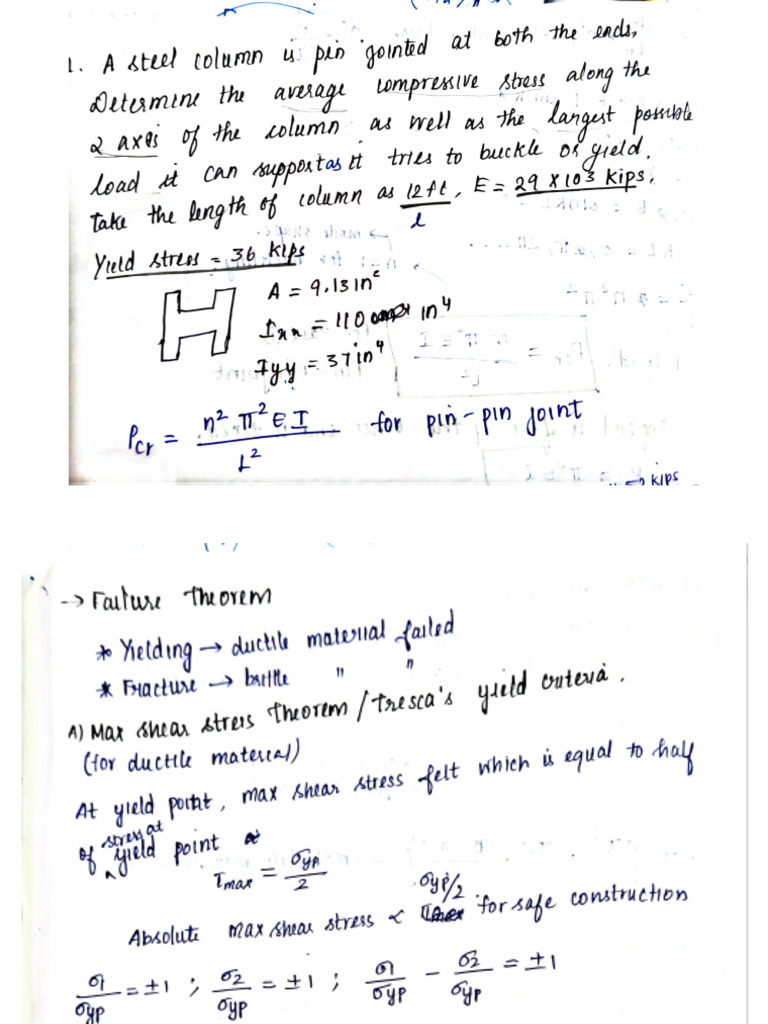 1. A steel column is pin jointed at both the ends,
Determine the average compressive stress along the
2 axes of the column as well as the largest possible
load it can support as it tries to buckle or yield.
take the length of column as 12 ft, E = 29 x 103 kips,
l
Yield stress = 36 kips
A = 9.13 in²
Ixx = 110 in⁴
Iyy = 37 in⁴
Pcr = n² π² E I / L² for pin-pin joint
→ kips
→ Failure Theorem
* Yielding → ductile material failed
* Fracture → brittle " "
A) Max shear stress Theorem / Tresca's yield criteria.
(for ductile material)
At yield point, max shear stress felt which is equal to half
of stress at yield point
τmax = σyp / 2
σyp/2
Absolute max shear stress < for safe construction
σ1/σyp = ±1 ; σ2/σyp = ±1 ; σ1/σyp - σ2/σyp = ±1